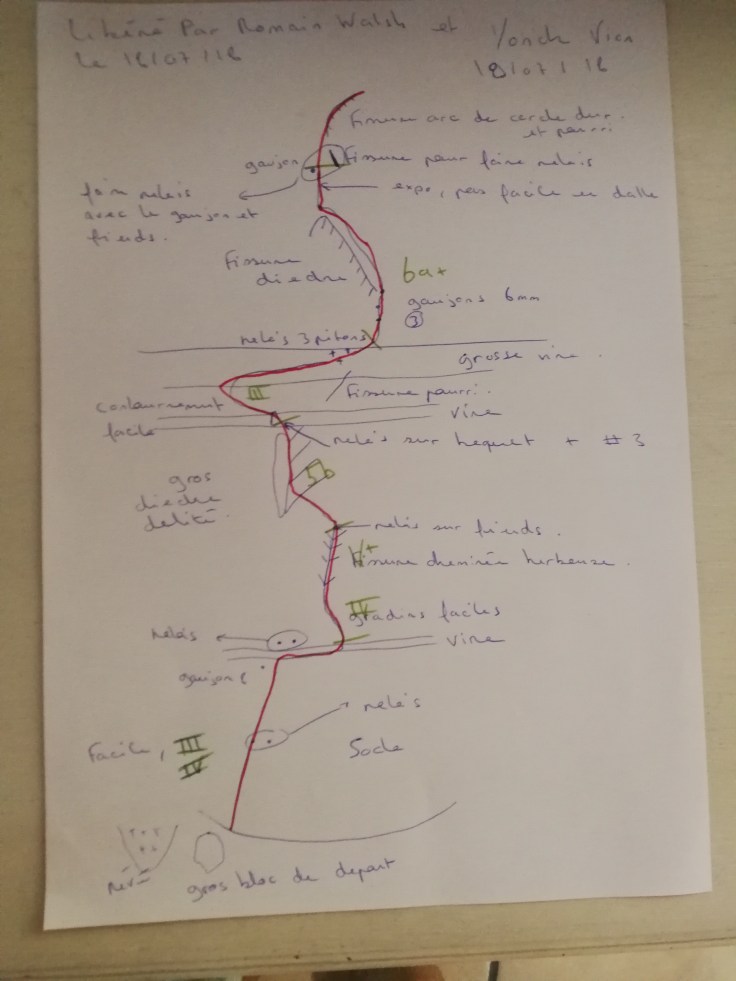 Libéré Par Romain Walsh et
le 18/07/18
Vica
18/07/18
Fissure arc de cercle dur
et pourri
goujon
Fissure pour faire relais
expo, pas facile en dalle
faire relais
avec le goujon et
friends.
Fissure
dièdre
6a+
goujons 6mm
3
relais 3 pitons
grosse vire.
III
Fissure pourri.
contournement
facile
vire
relais sur becquet + #3
5b
gros
dièdre
délité.
relais sur friends.
V+
Fissure cheminée herbeuse.
IV
gradins faciles
relais
vire
goujon
relais
Facile, III
IV
Socle
névé
gros bloc de depart